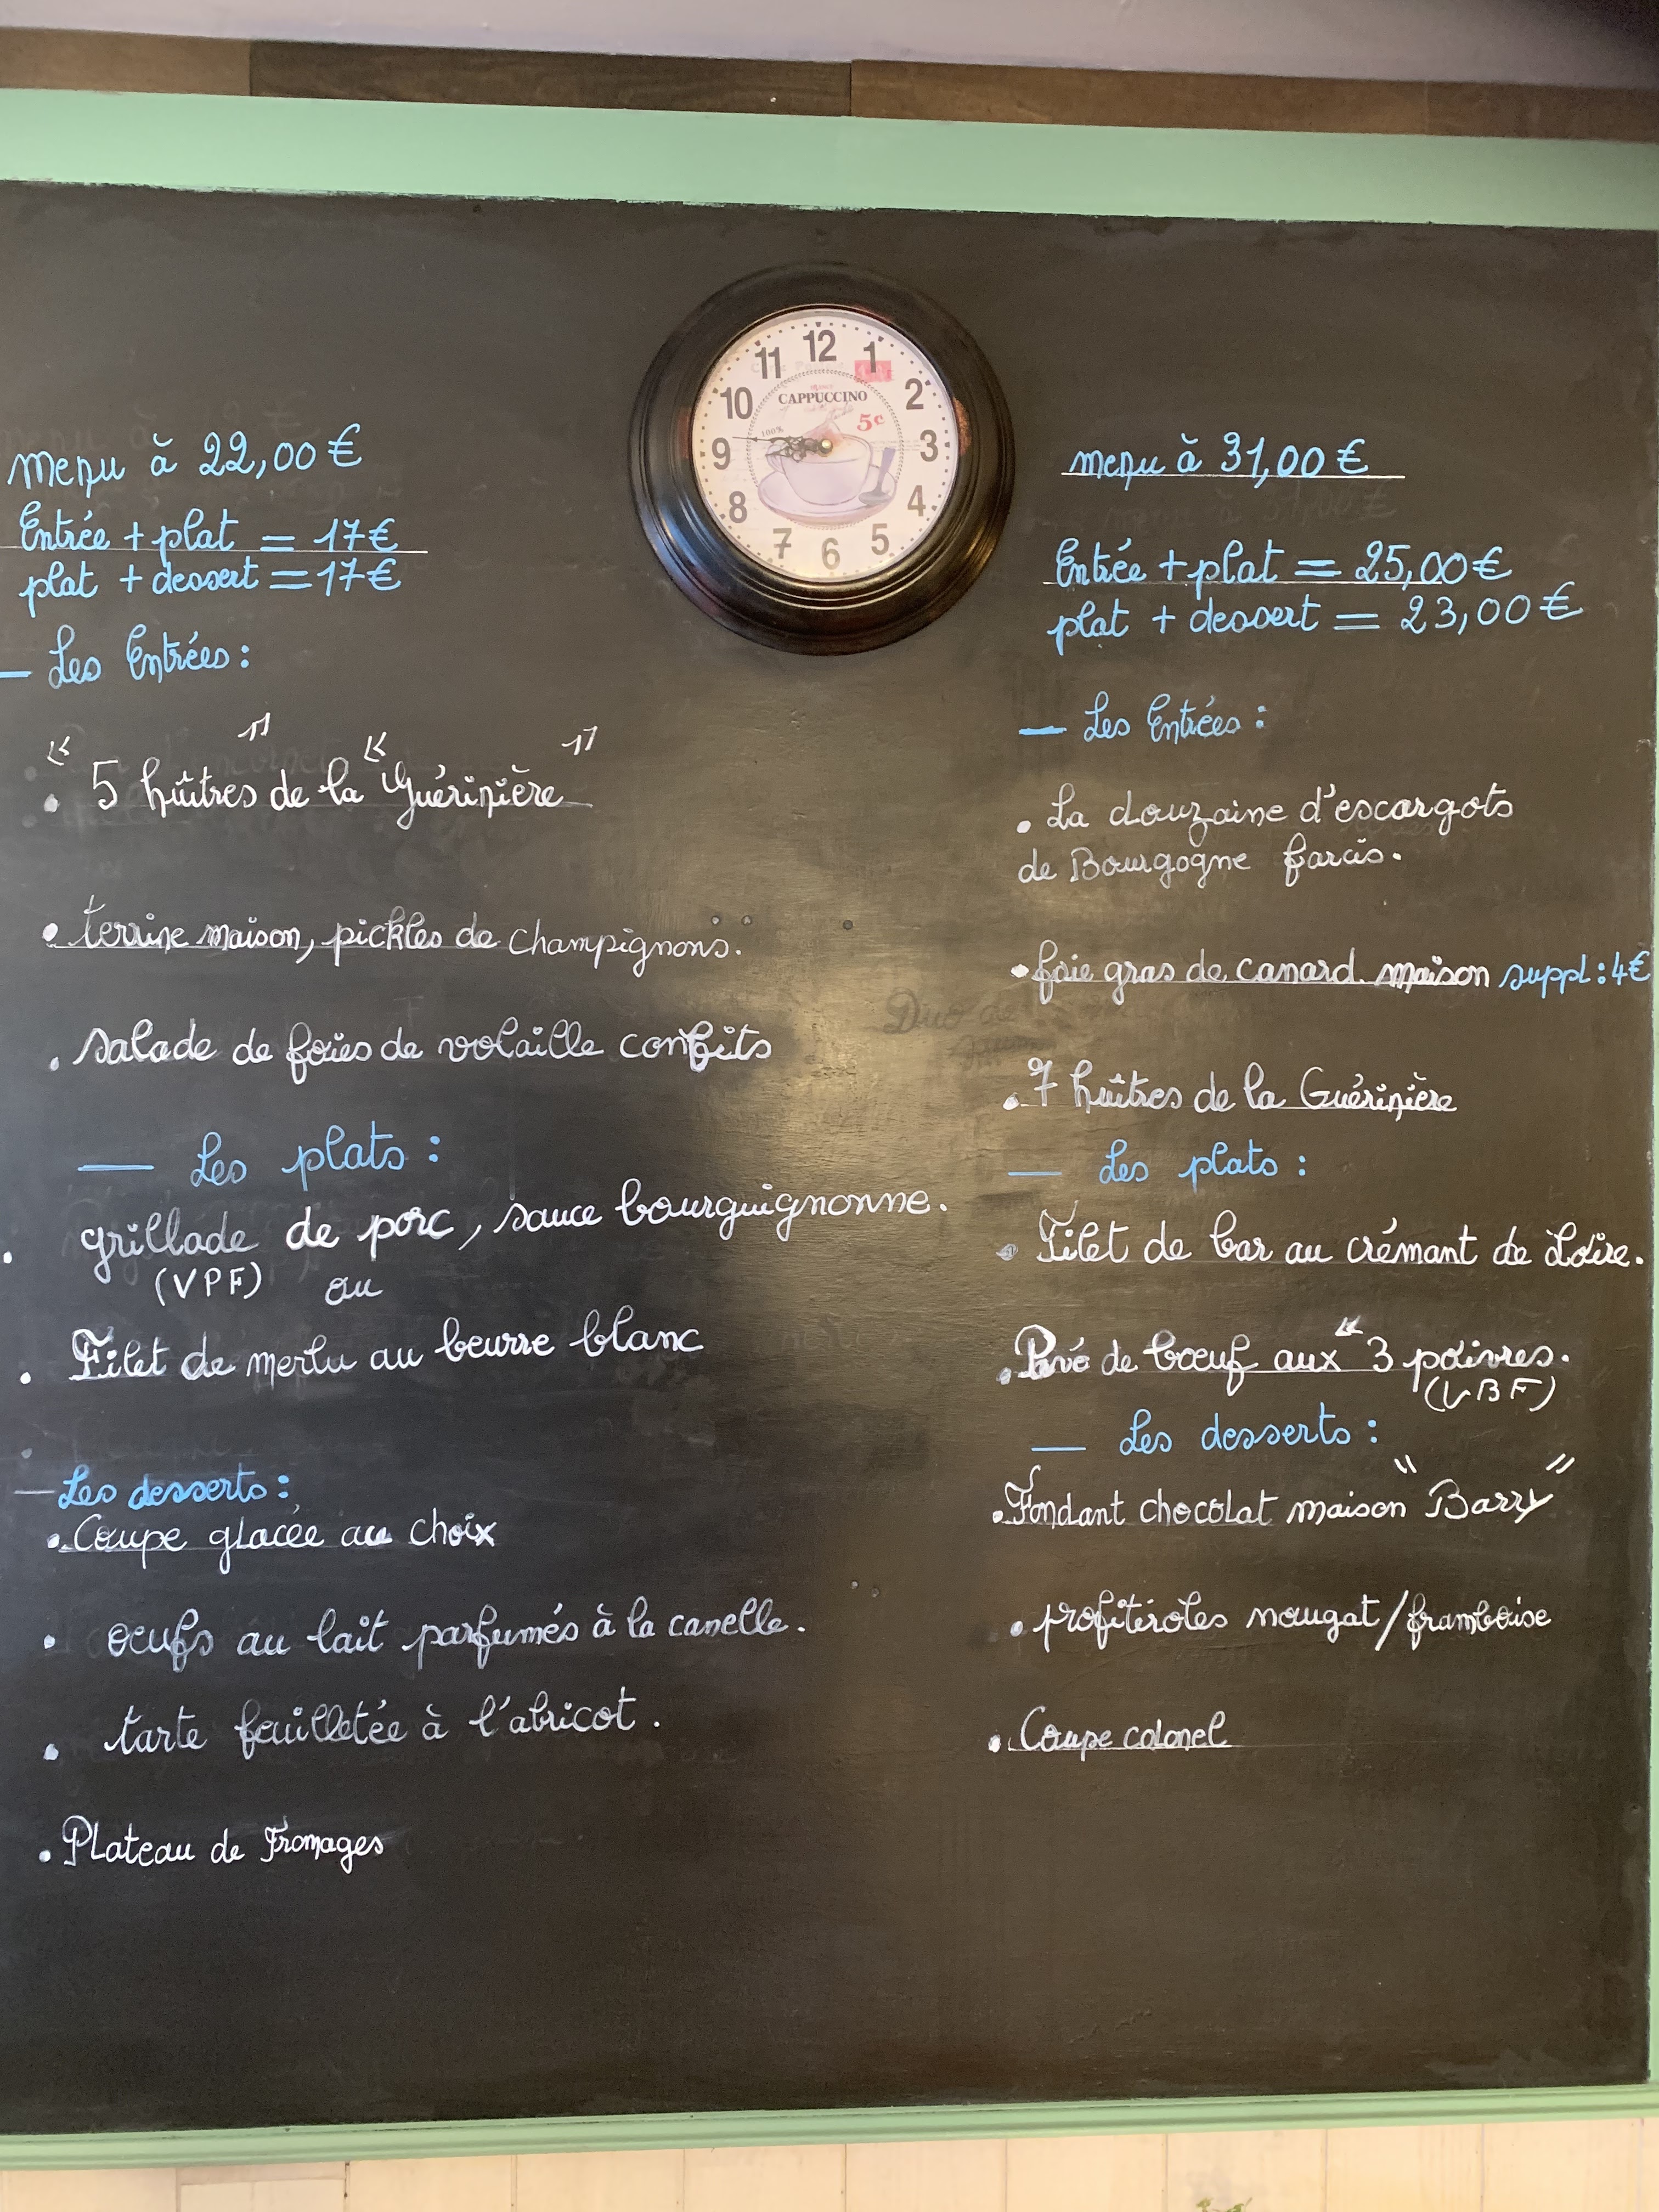 12
11
1
10
2
9
3
8
4
7
5
6
CAPPUCCINO
100%
5c
menu à 22,00 €
Entrée + plat = 17 €
plat + dessert = 17 €
— Les Entrées :
• " 5 huîtres " de la " Guérinière "
• terrine maison, pickles de champignons.
• salade de foies de volaille confits
— Les plats :
• grillade de porc, sauce bourguignonne.
(VPF) ou
• Filet de merlu au beurre blanc
— Les desserts :
• Coupe glacée au choix
• oeufs au lait parfumés à la canelle.
• tarte feuilletée à l'abricot.
• Plateau de Fromages
menu à 31,00 €
Entrée + plat = 25,00 €
plat + dessert = 23,00 €
— Les Entrées :
• La douzaine d'escargots
de Bourgogne farcis.
• foie gras de canard maison suppl : 4 €
• 7 huîtres de la Guérinière
— Les plats :
• Filet de bar au crémant de Loire.
• Pavé de bœuf aux " 3 poivres.
(VBF)
— Les desserts :
• Fondant chocolat maison " Barry "
• profiteroles nougat/framboise
• Coupe colonel